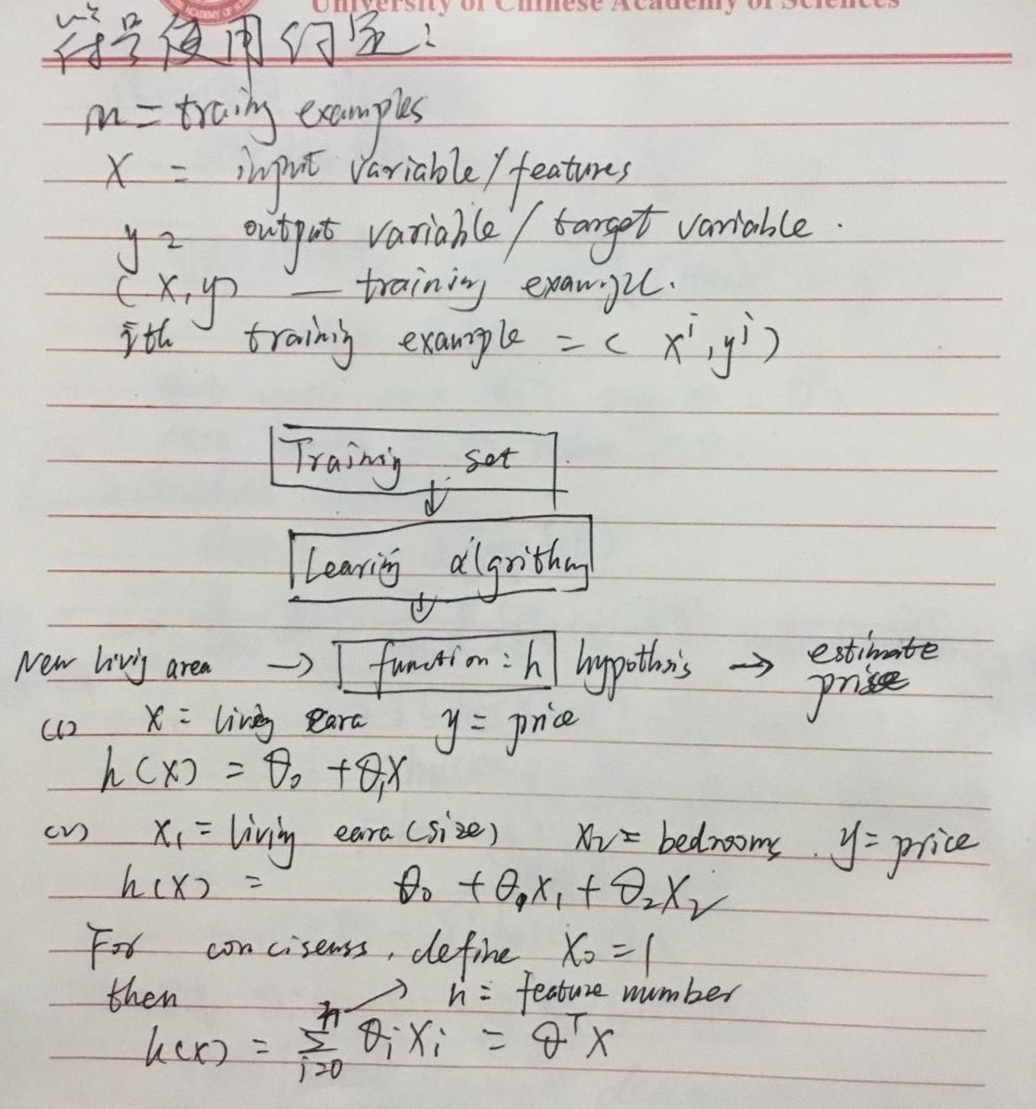 University of Chinese Academy of Sciences
符号使用约定:
m = traing examples
X = input variable / features
y = output variable / target variable.
(X, y) — training example.
ith training example = (xⁱ, yⁱ)
Training set
↓
Learing algorithm
↓
New livig area → function: h hypothsis → estimate price
(1) x = living eara y = price
h(X) = θ₀ + θ₁X
(2) X₁ = living eara (size) X₂ = bedrooms. y = price
h(X) = θ₀ + θ₁X₁ + θ₂X₂
For concisenss, define X₀ = 1
then → n = feature number
h(X) = ∑ᵢ₌₀ⁿ θᵢXᵢ = θᵀX